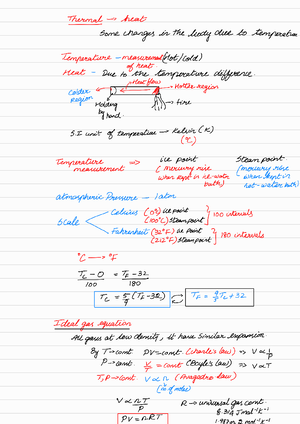 Thermal → heat
Some changes in the body due to temperature
Temperature - measurement (Hot/Cold)
of heat
Heat - Due to the temperature difference.
Colder region
Heat flow
Hotter region
Holding by hand.
Fire
S.I unit of temperature → Kelvin (K)
(°C)
Temperature measurement ⇒
ice point
(mercury rise when kept in ice-water bath)
Steam point
(mercury rise - when kept in hot-water bath)
atmospheric Pressure - 1 atm
Scale
Celcius (0°) ice point
(100°C) Steam point
100 intervals
Fahrenheit (32°F) ice point
(212°F) Steam point
180 intervals
°C → °F
Tc - 0 / 100 = TF - 32 / 180
Tc = 5/9 (TF - 32)
TF = 9/5 Tc + 32
Ideal gas equation
All gases at low density, it have similar expansion
By T → const PV = const. (Charle's law) ⇒ V ∝ 1/P
P → const. V/T = const (Boyle's law) ⇒ V ∝ T
T, P → const V ∝ n (Avagadro law)
(no of moles)
V ∝ nT/P
R → universal gas const.
8.314 J mol⁻¹ K⁻¹
PV = nRT